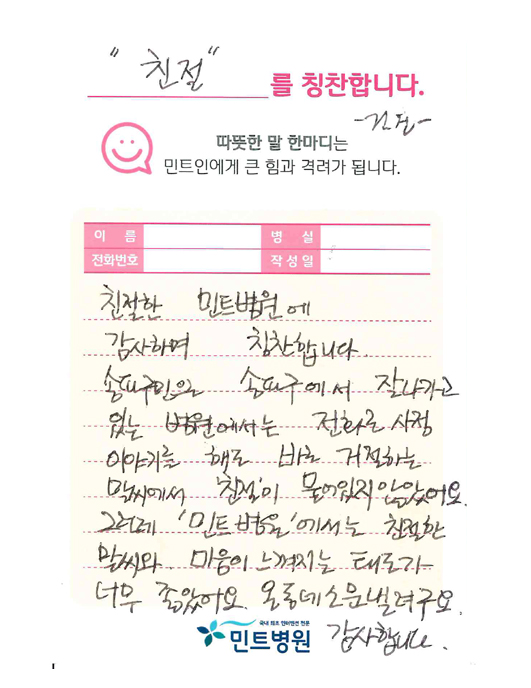 "친절"
를 칭찬합니다.
따뜻한 말 한마디는
민트인에게 큰 힘과 격려가 됩니다.
이 름 병 실
전화번호 작성일
친절한 민트병원에
감사하며 칭찬합니다.
송파구민으로 송파구에서 잘나가고
있는 병원에서는 전화로 사정
이야기를 해도 바로 거절하는
말씨에서 '친절'이 묻어있지 않았어요.
그런데 '민트병원'에서는 친절한
말씨와 마음이 느껴지는 태도가
너무 좋았어요. 온동네 소문낼려구요.
감사합니다.
국내 최초 인터벤션 전문
민트병원